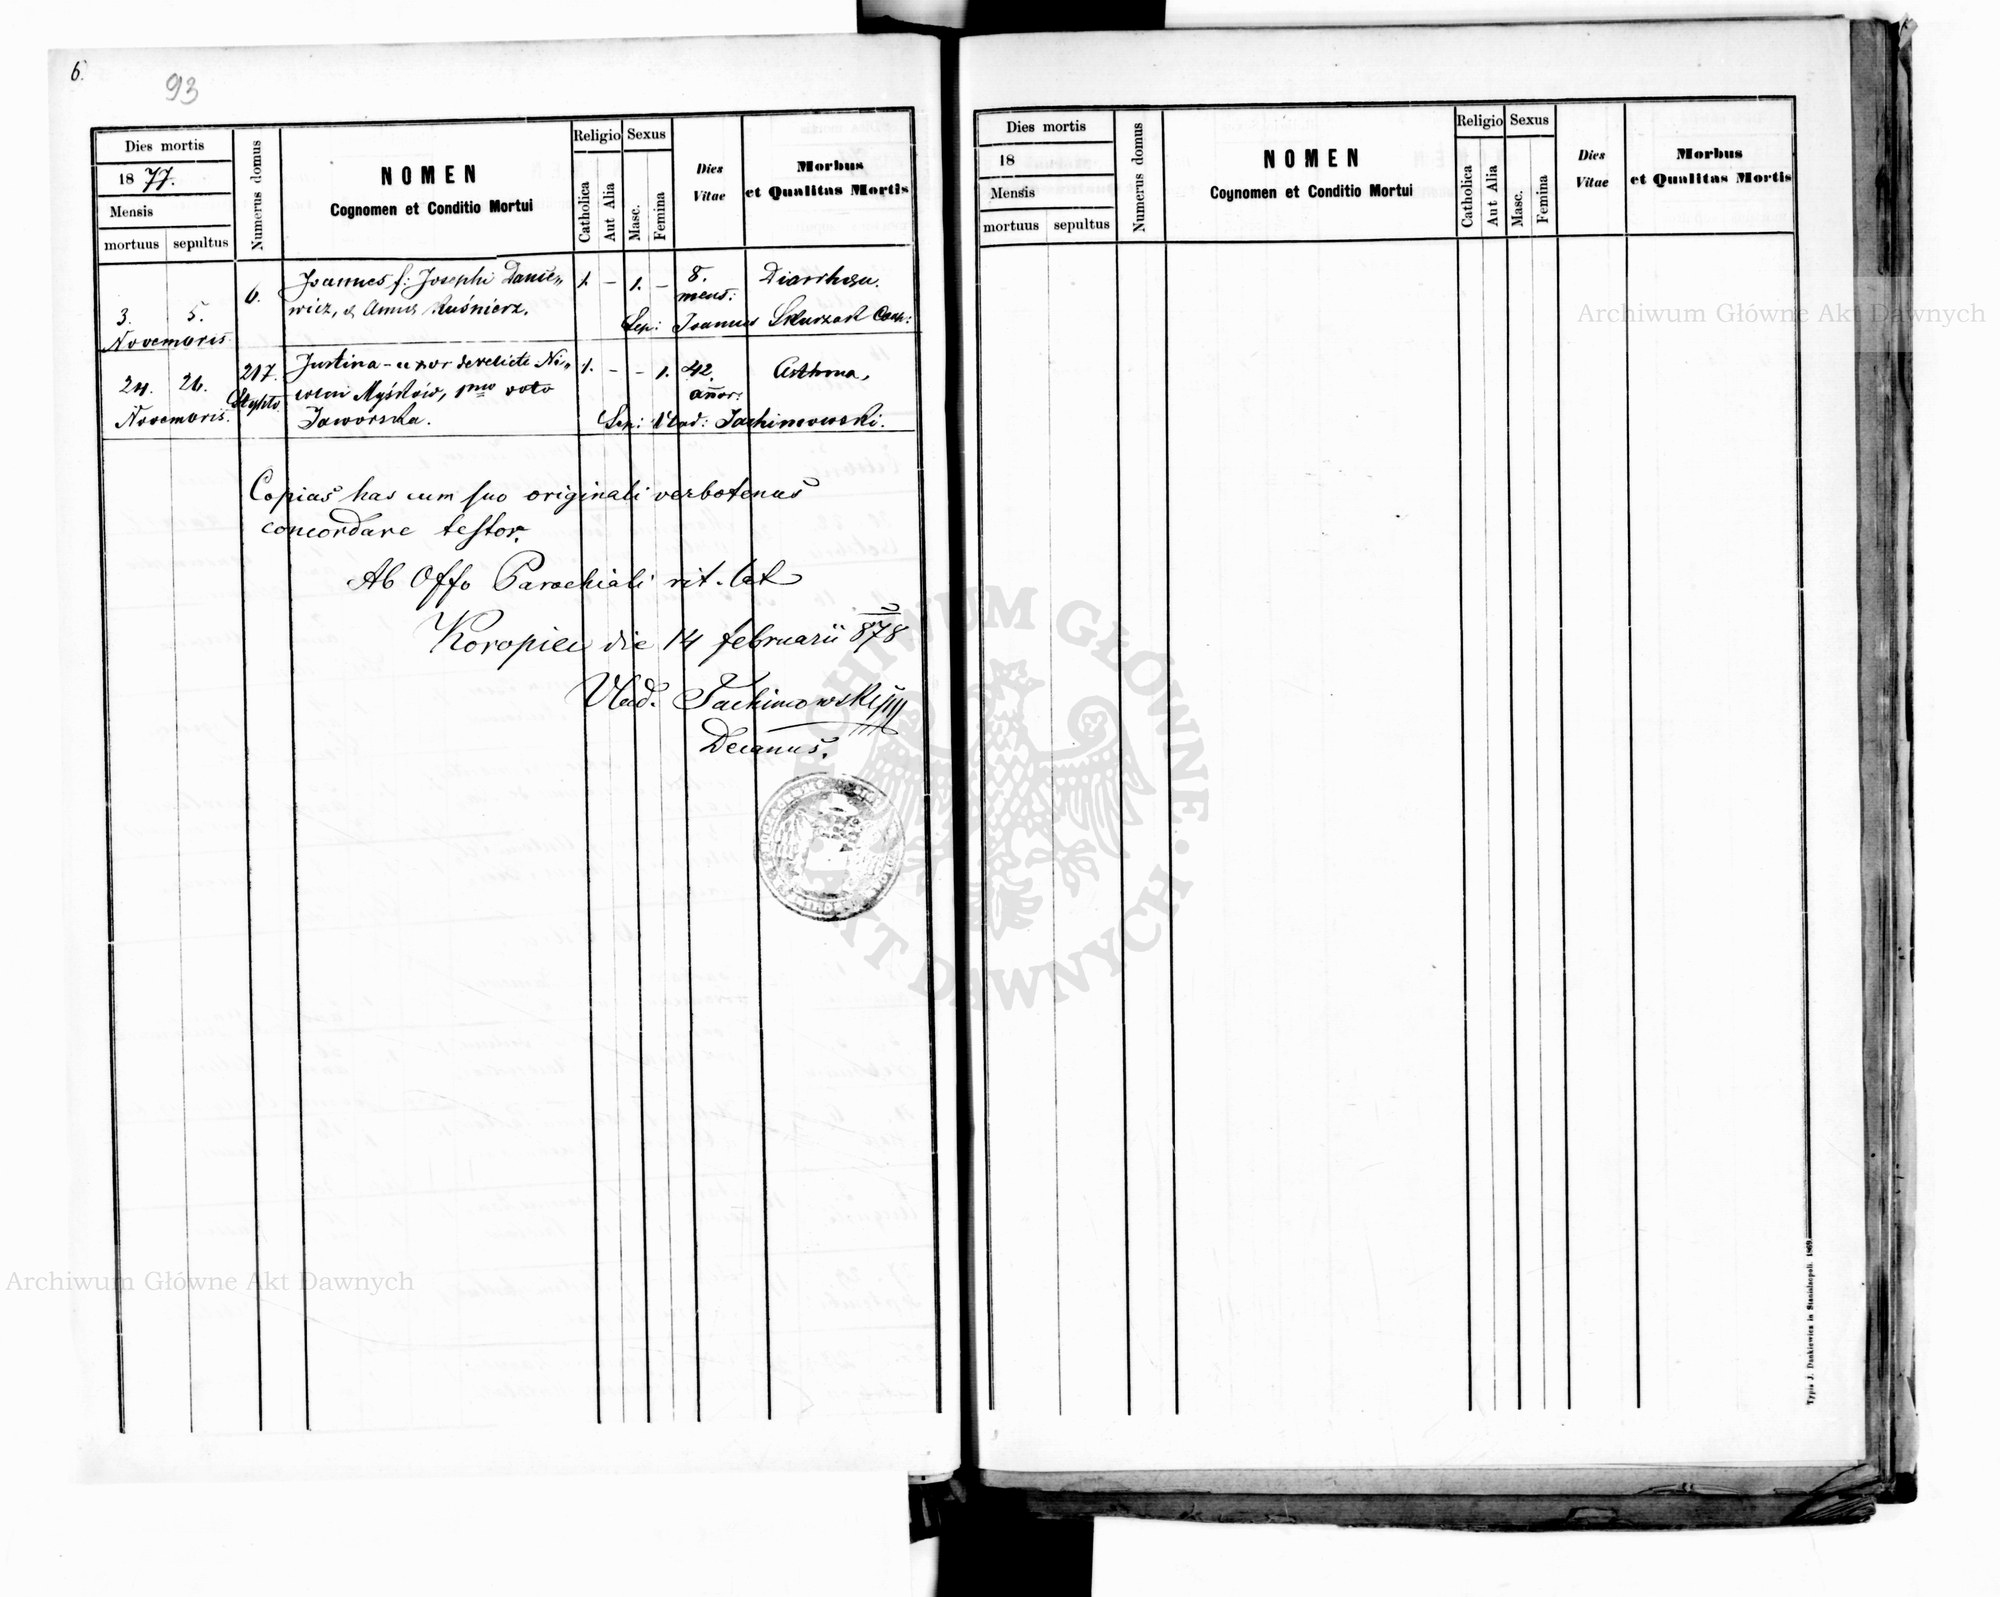 6.
93
Dies mortis
1877.
Mensis
mortuus sepultus
Numerus domus
NOMEN
Cognomen et Conditio Mortui
Religio
Catholica
Aut Alia
Sexus
Masc.
Femina
Dies
Vitae
Morbus
et Qualitas Mortis
3. 5.
Novembris
6.
Joannes f: Josephi Danie„
wicz, & Annæ Kuśnierz.
1. – 1. –
8.
mens:
Diarrhœa.
Sep: Joannes Skurzak Coop:
24. 26.
Novembris.
217.
Justina – uxor derelicti Ni„
colai Myśków, 1mo voto
Jaworska.
1. – – 1.
42.
añor:
Asthma,
Sep: Vlad: Jachimowski.
Copias has cum suo originali verbotenus
concordare testor.
Ab Offo Parochiali rit. lat
Koropiec die 14 februarii 878
Vlad. Jachimowski
Decanus.
Dies mortis
18
Mensis
mortuus sepultus
Numerus domus
NOMEN
Cognomen et Conditio Mortui
Religio
Catholica
Aut Alia
Sexus
Masc.
Femina
Dies
Vitae
Morbus
et Qualitas Mortis
Typis J. Dankiewicz in Stanislaopoli. 1869.
Archiwum Główne Akt Dawnych
ARCHIWUM GŁÓWNE
AKT DAWNYCH
Archiwum Główne Akt Dawnych